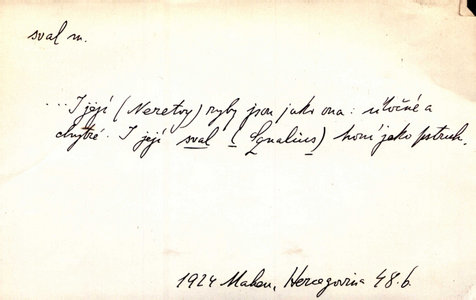 sval m.
... I její (Neretvy) ryby jsou jako ona: útočné a
chytré. I její sval (Squalius) honí jako pstruh.
1924 Mahen, Hercegovina 48.b.